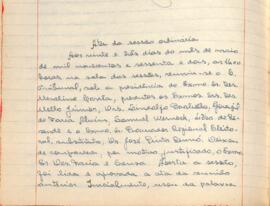 Ata da sessão ordinária
Aos vinte e três dias do mês de maio
de mil novecentos e sessenta e dois, às
horas na sala das sessões, reuniu-se o E.
Tribunal, sob a presidência do Exmo Sr. Des.
Costa, presentes os Exmos Srs. Des.
Mello Júnior, Drs.
de Faria Alvim, Samuel Werneck,
e o Exmo Sr. Procurador Regional Eleito-
ral, substituto, Dr. José Pinto Deixou
de comparecer, por motivo justificado, o Exmo
Sr. Des. Faria e Sousa. Aberta a sessão,
foi lida e aprovada a ata da reunião
anterior. Inicialmente, usou da palavra